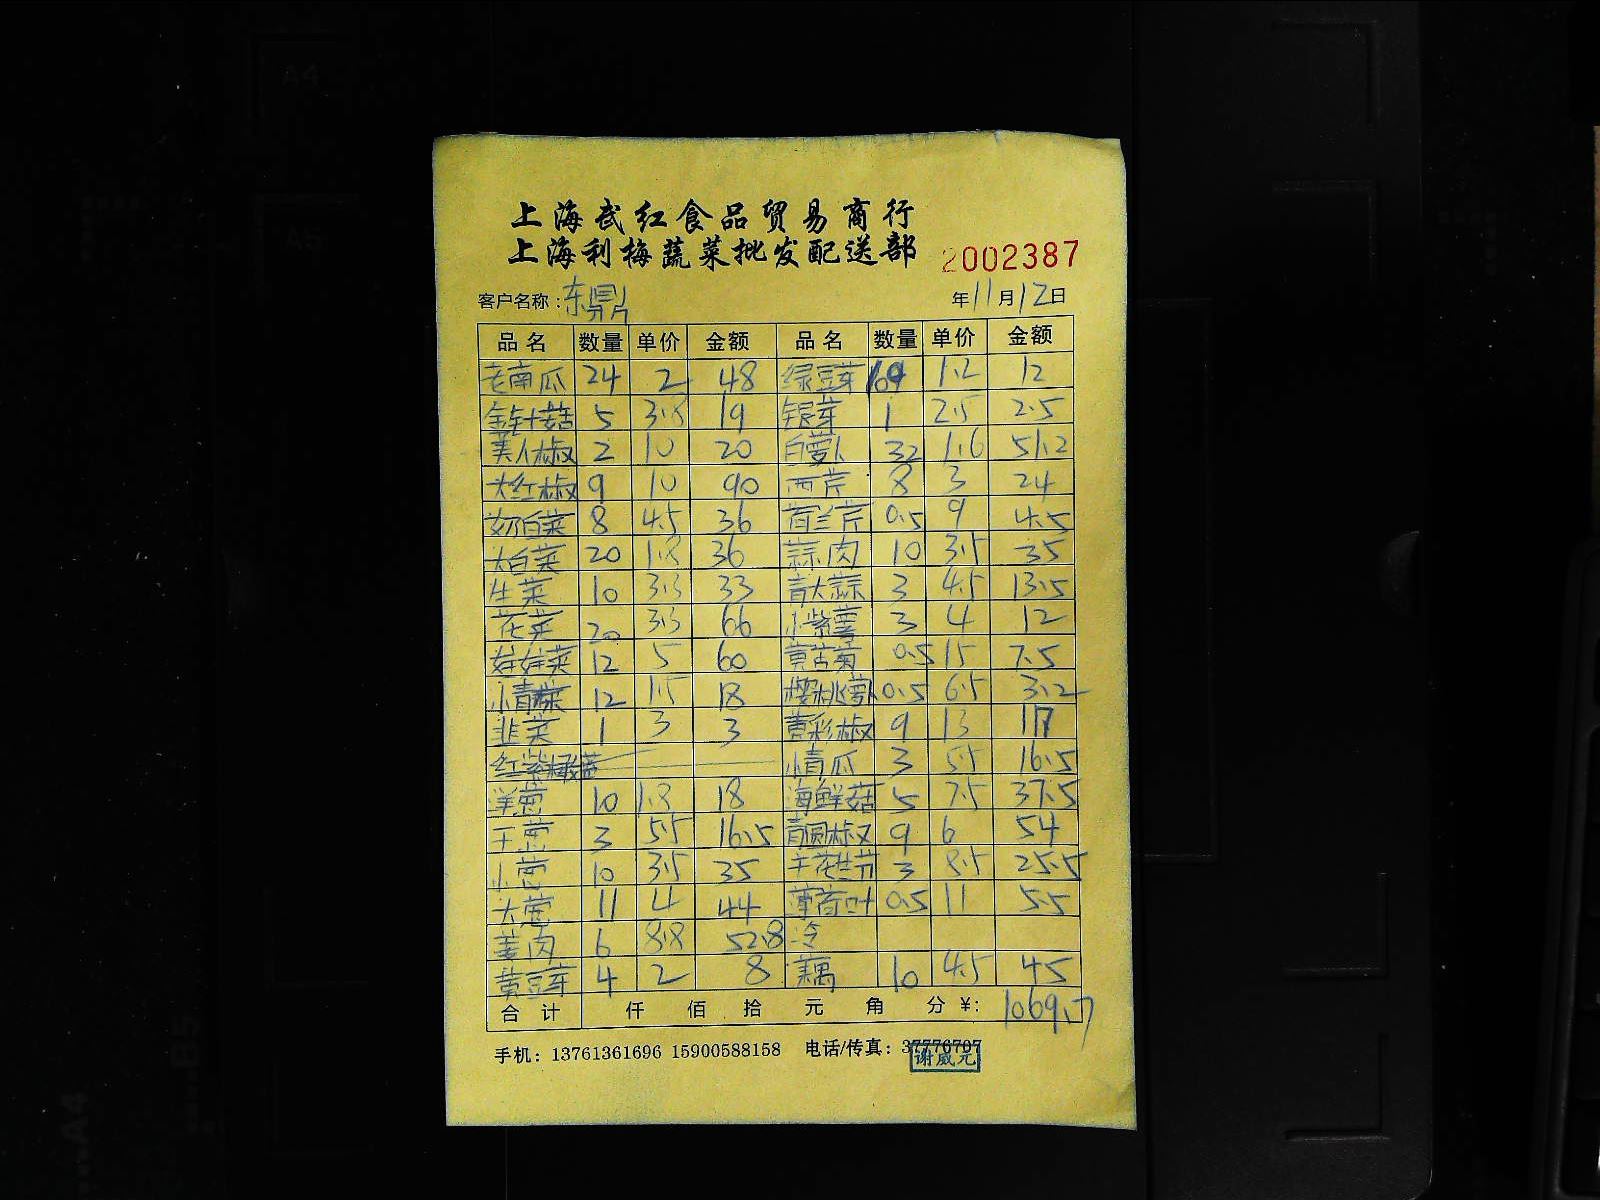 上海武红食品贸易商行
上海利梅蔬菜批发配送部 2002387
客户名称：东鼎 年11月12日
品名 数量 单价 金额 品名 数量 单价 金额
老南瓜 24 2 48 绿豆芽 10 1.2 12
金针菇 5 3.8 19 银芽 1 2.5 2.5
美人椒 2 10 20 白萝卜 32 1.6 51.2
大红椒 9 10 90 西芹 8 3 24
奶白菜 8 4.5 36 荷兰芹 0.5 9 4.5
大白菜 20 1.8 36 蒜肉 10 3.5 35
生菜 10 3.3 33 青大蒜 3 4.5 13.5
花菜 20 3.3 66 小紫薯 3 4 12
娃娃菜 12 5 60 黄苦菊 0.5 15 7.5
小青菜 12 1.5 18 樱桃萝卜 0.5 6.5 3.2
韭菜 1 3 3 黄彩椒 9 13 117
小青瓜 3 5.5 16.5
洋葱 10 1.8 18 海鲜菇 5 7.5 37.5
干葱 3 5.5 16.5 青圆椒 9 6 54
小葱 10 3.5 35 3 8.5 25.5
大葱 11 4 44 薄荷叶 0.5 11 5.5
姜肉 6 8.8 52.8 冷
黄豆芽 4 2 8 藕 10 4.5 45
合计 仟 佰 拾 元 角 分 ¥: 1069.7
手机：13761361696 15900588158 电话/传真：37776707
谢威元